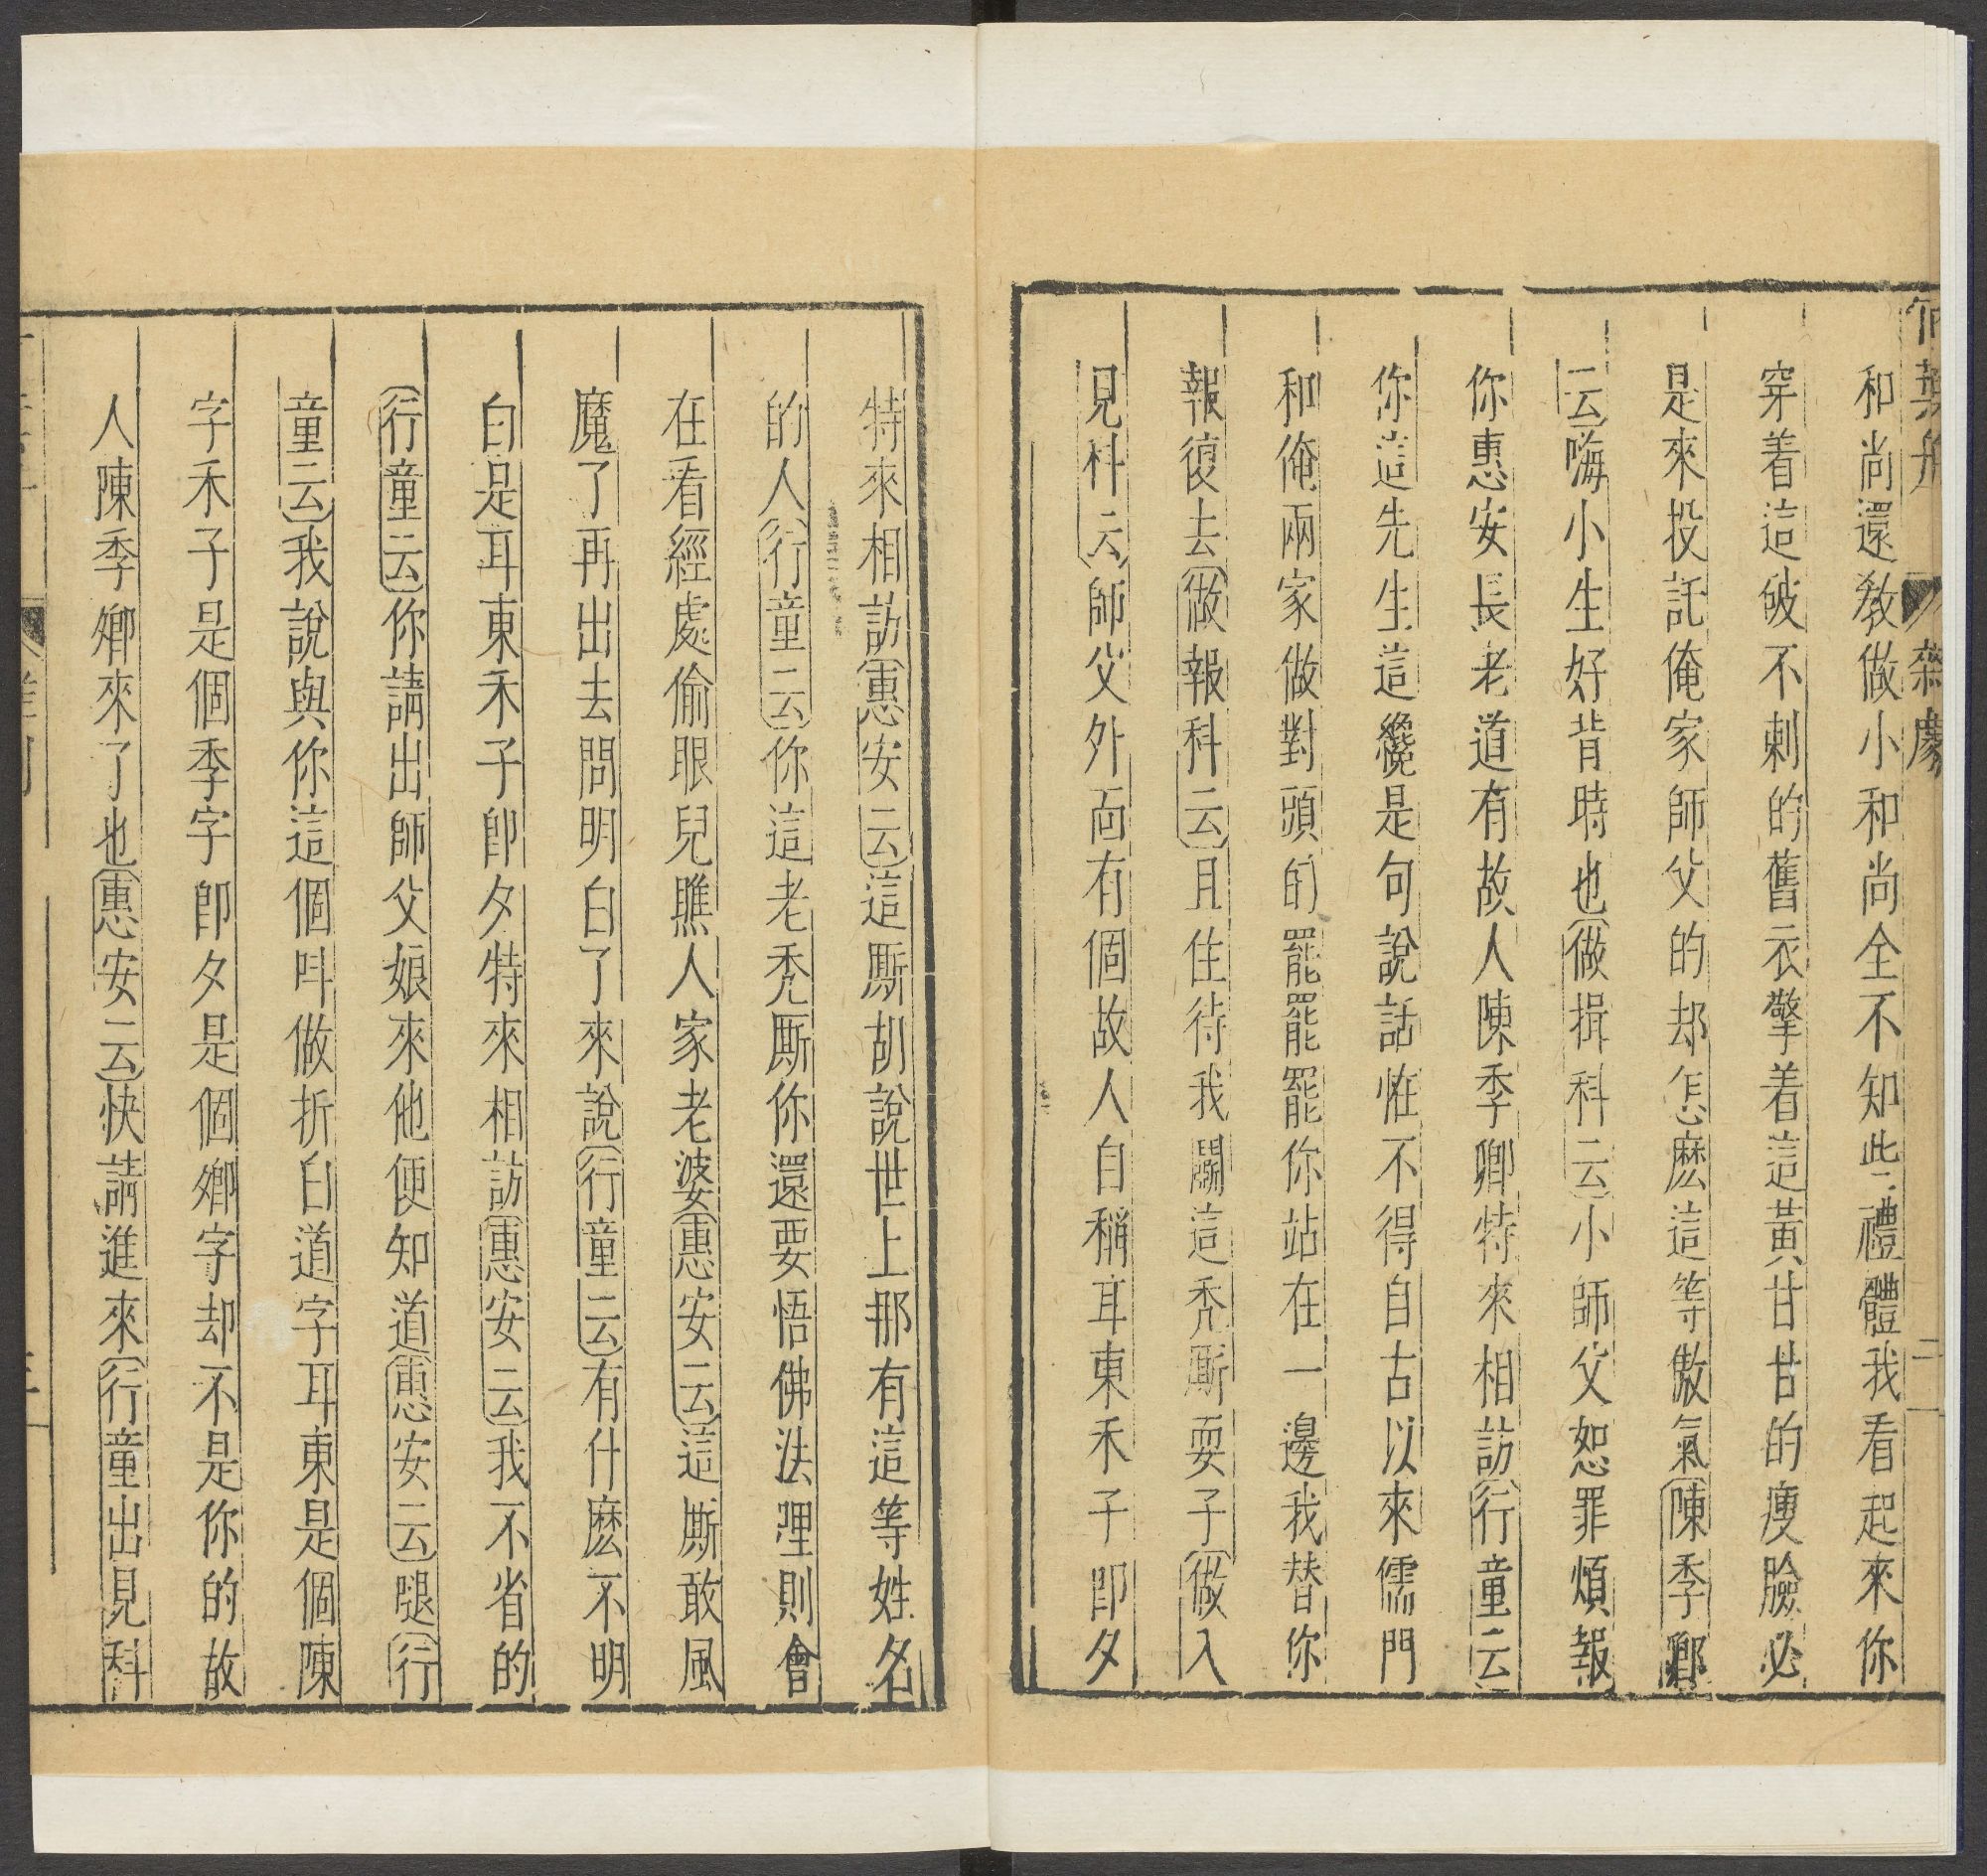 竹葉舟 雜劇 二
和尚還教做小和尚全不知些禮體我看起來你
穿着這破不剌的舊衣擎着這黃甘甘的瘦臉必
是來投託俺家師父的却怎麽這等傲氣陳季卿
云嗨小生好背時也做揖科云小師父恕罪煩報
你惠安長老道有故人陳季卿特來相訪行童云
你這先生這纔是句說話恠不得自古以來儒門
和俺兩家做對頭的罷罷罷你站在一邊我替你
報復去做報科云且住待我鬭這禿厮耍子做入
見科云師父外面有個故人自稱耳東禾子即夕
特來相訪惠安云這厮胡說世上那有這等姓名
的人行童云你這老禿厮你還要悟佛法理則會
在看經處偷眼兒瞧人家老婆惠安云這厮敢風
魔了再出去問明白了來說行童云有什麽不明
白是耳東禾子卽夕特來相訪惠安云我不省的
行童云你請出師父娘來他便知道惠安云腿行
童云我說與你這個呌做折白道字耳東是個陳
字禾子是個季字卽夕是個鄉字却不是你的故
人陳季鄉來了也惠安云快請進來行童出見科